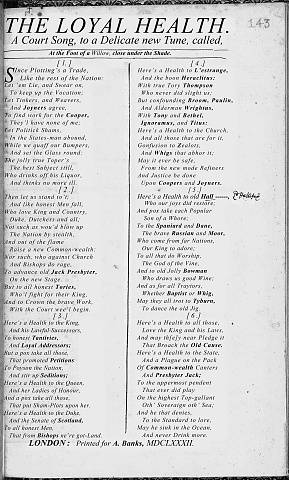 143
THE LOYAL HEALTH.
A Court Song, to a Delicate new Tune, called,
At the Foot of a Willow, close under the Shade.
[1.]
Since Plotting's a Trade,
Like the rest of the Nation:
Let 'em Lie, and Swear on,
To keep up the Vocation.
Let Tinkers, and Weavers,
And Joyners agree,
To find work for the Cooper,
They'l have none of me.
Let Politick Shams,
I'n the States-man abound,
While we quaff our Bumpers,
And set the Glass round:
The jolly true Toper's
The best Subject still,
Who drinks off his Liquor,
And thinks no more ill.
[2.]
Then let us stand to't;
And like honest Men fall,
Who love King and Country,
Duke, Dutchess and all;
Not such as wou'd blow up
The Nation by stealth,
And out of the flame
Raise a new Common-wealth:
Nor such, who against Church
And Bishops do rage,
To advance old Jack Presbyter,
On the new Stage.
But to all honest Tories,
Who'l fight for their King,
And to Crown the brave Work,
With the Court wee'l begin.
[3.]
Here's a Health to the King,
And his Lawful Successors,
To honest Tantivies,
And Loyal Addressors;
But a pox take all those,
That promoted Petitions
To Poyson the Nation,
And stir up Seditions:
Here's a Health to the Queen,
And her Ladies of Honour,
And a pox take all those,
That put Sham-Plots upon her.
Here's a Health to the Duke,
And the Senate of Scotland,
To all honest Men,
That from Bishops ne're got-Land.
[4.]
Here's a Health to L'estrange,
And the boon Heraclitus;
With true Tory Thompson
Who never did slight us:
But confounding Broom, Paulin,
And Alderman Wrightus,
With Tony and Bethel,
Ignoramus, and Titus:
Here's a Health to the Church,
And all those that are for it,
Confusion to Zealots,
And Whigs that abhor it:
May it ever be safe,
From the new mode Refiners
And Justice be done
Upon Coopers and Joyners.
[5.]
Here's a Health to old Hall
Who our joys did restore,
And pox take each Popular
Son of a Whore:
To the Spaniard and Dane,
The brave Russian and Moor,
Who come from far Nations,
Our King to adore;
To all that do Worship,
The God of the Vine,
And to old Jolly Bowman
Who draws us good Wine;
And as for all Traytors,
Whether Baptist or Whig,
May they all trot to Tyburn,
To dance the old Jig.
[6.]
Here's a Health to all those,
Love the King and his Laws,
And may they ne'er pledge it
That Broach the Old Cause.
Here's a Health to the State,
And a Plague on the Pack
Of Common-wealth Canters
And Presbyter Jack;
To the uppermost pendent
That ever did play
On the highest Top-gallant
Oth' Soveraign oth' Sea;
And he that denies,
To the Standard to lore,
May he sink in the Ocean,
And never Drink more.
LONDON: Printed for A. Banks, MDCLXXXII.